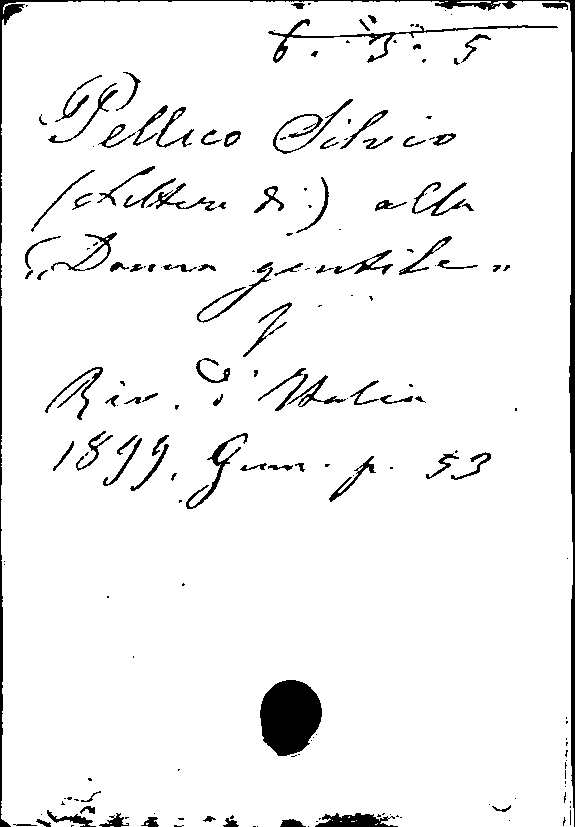 6. 3. 5
Pellico Silvio
(Lettere di) alla
„Donna gentile„
Riv. d'Italia
1899, Genn. p. 53